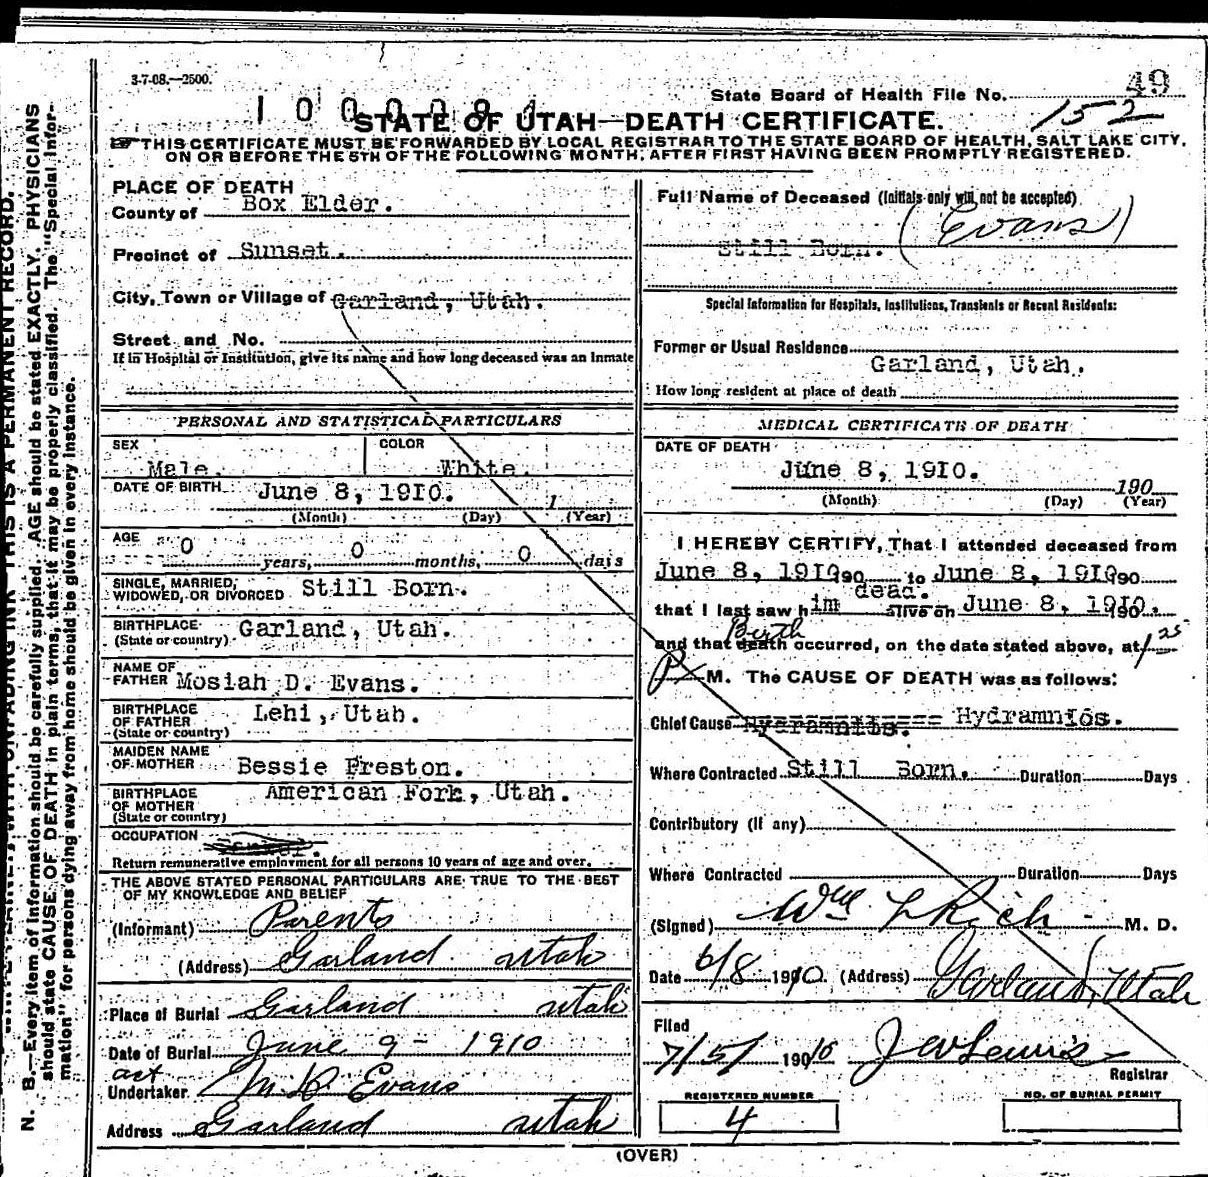 3-7-08.—2500.
49
State Board of Health File No. 152
1000084
STATE OF UTAH—DEATH CERTIFICATE.
☞THIS CERTIFICATE MUST BE FORWARDED BY LOCAL REGISTRAR TO THE STATE BOARD OF HEALTH, SALT LAKE CITY,
ON OR BEFORE THE 5TH OF THE FOLLOWING MONTH, AFTER FIRST HAVING BEEN PROMPTLY REGISTERED.
PLACE OF DEATH
County of Box Elder.
Precinct of Sunset.
City, Town or Village of Garland, Utah.
Street and No.
If in Hospital or Institution, give its name and how long deceased was an Inmate
PERSONAL AND STATISTICAL PARTICULARS
SEX COLOR
Male. White.
DATE OF BIRTH June 8, 1910. 1
(Month) (Day) (Year)
AGE 0 years, 0 months, 0 days
SINGLE, MARRIED,
WIDOWED, OR DIVORCED Still Born.
BIRTHPLACE
(State or country) Garland, Utah.
NAME OF
FATHER Mosiah D. Evans.
BIRTHPLACE
OF FATHER
(State or country) Lehi, Utah.
MAIDEN NAME
OF MOTHER Bessie Preston.
BIRTHPLACE
OF MOTHER
(State or country) American Fork, Utah.
OCCUPATION
Return remunerative employment for all persons 10 years of age and over.
THE ABOVE STATED PERSONAL PARTICULARS ARE TRUE TO THE BEST
OF MY KNOWLEDGE AND BELIEF
(Informant) Parents
(Address) Garland Utah
Place of Burial Garland Utah
Date of Burial June 9 - 1910
act
Undertaker M D Evans
Address Garland Utah
Full Name of Deceased (Initials only will not be accepted)
Still Born. (Evans)
Special Information for Hospitals, Institutions, Transients or Recent Residents:
Former or Usual Residence
Garland, Utah.
How long resident at place of death
MEDICAL CERTIFICATE OF DEATH
DATE OF DEATH
June 8, 1910. 190
(Month) (Day) (Year)
I HEREBY CERTIFY, That I attended deceased from
June 8, 1910 190 to June 8, 1910 190
dead.
that I last saw him alive on June 8, 1910. 190
Birth
and that death occurred, on the date stated above, at 1 25
P M. The CAUSE OF DEATH was as follows:
Chief Cause Hydramnits. Hydramnios.
Where Contracted Still Born. Duration Days
Contributory (if any)
Where Contracted Duration Days
(Signed) Wm L Rich - M. D.
Date 6/8 1910 (Address) Garland, Utah
Filed
7/5/ 190 10 J W Lewis
Registrar
REGISTERED NUMBER
4
NO. OF BURIAL PERMIT
(OVER)
N. B.—Every item of information should be carefully supplied. AGE should be stated EXACTLY. PHYSICIANS
should state CAUSE OF DEATH in plain terms, that it may be properly classified. The "Special Infor-
mation" for persons dying away from home should be given in every instance.
THIS IS A PERMANENT RECORD.